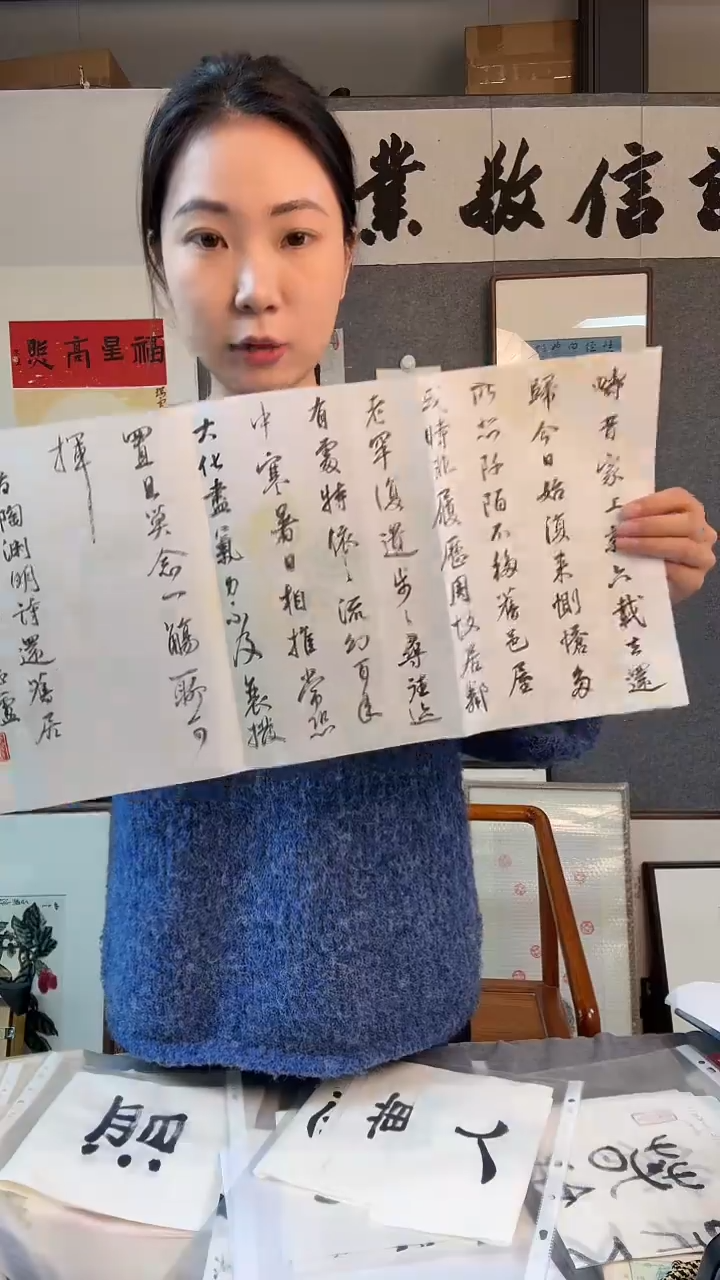 信敬業
福星高照
疇昔家上京六載去還
歸今日始復來惻愴多
所悲阡陌不移舊邑屋
或時非履歷周故居鄰
老罕復遺步〻尋往迹
有處特依〻流幻百年
中寒暑日相推常恐
大化盡氣力不及衰撥
置且莫念一觴聊可
揮
陶渊明詩還舊居
人